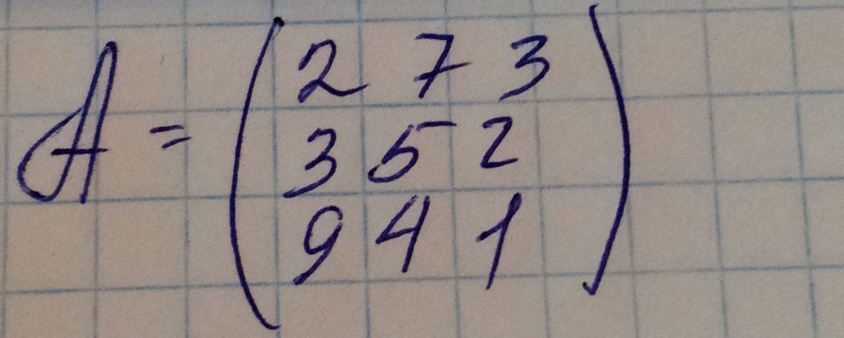 A = ( 2 7 3
3 5 2
9 4 1 )